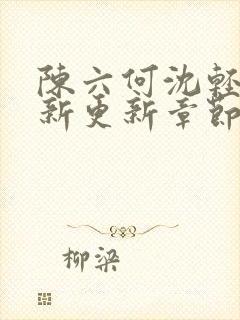 陳六何沈輕
新更新章節
柳梁